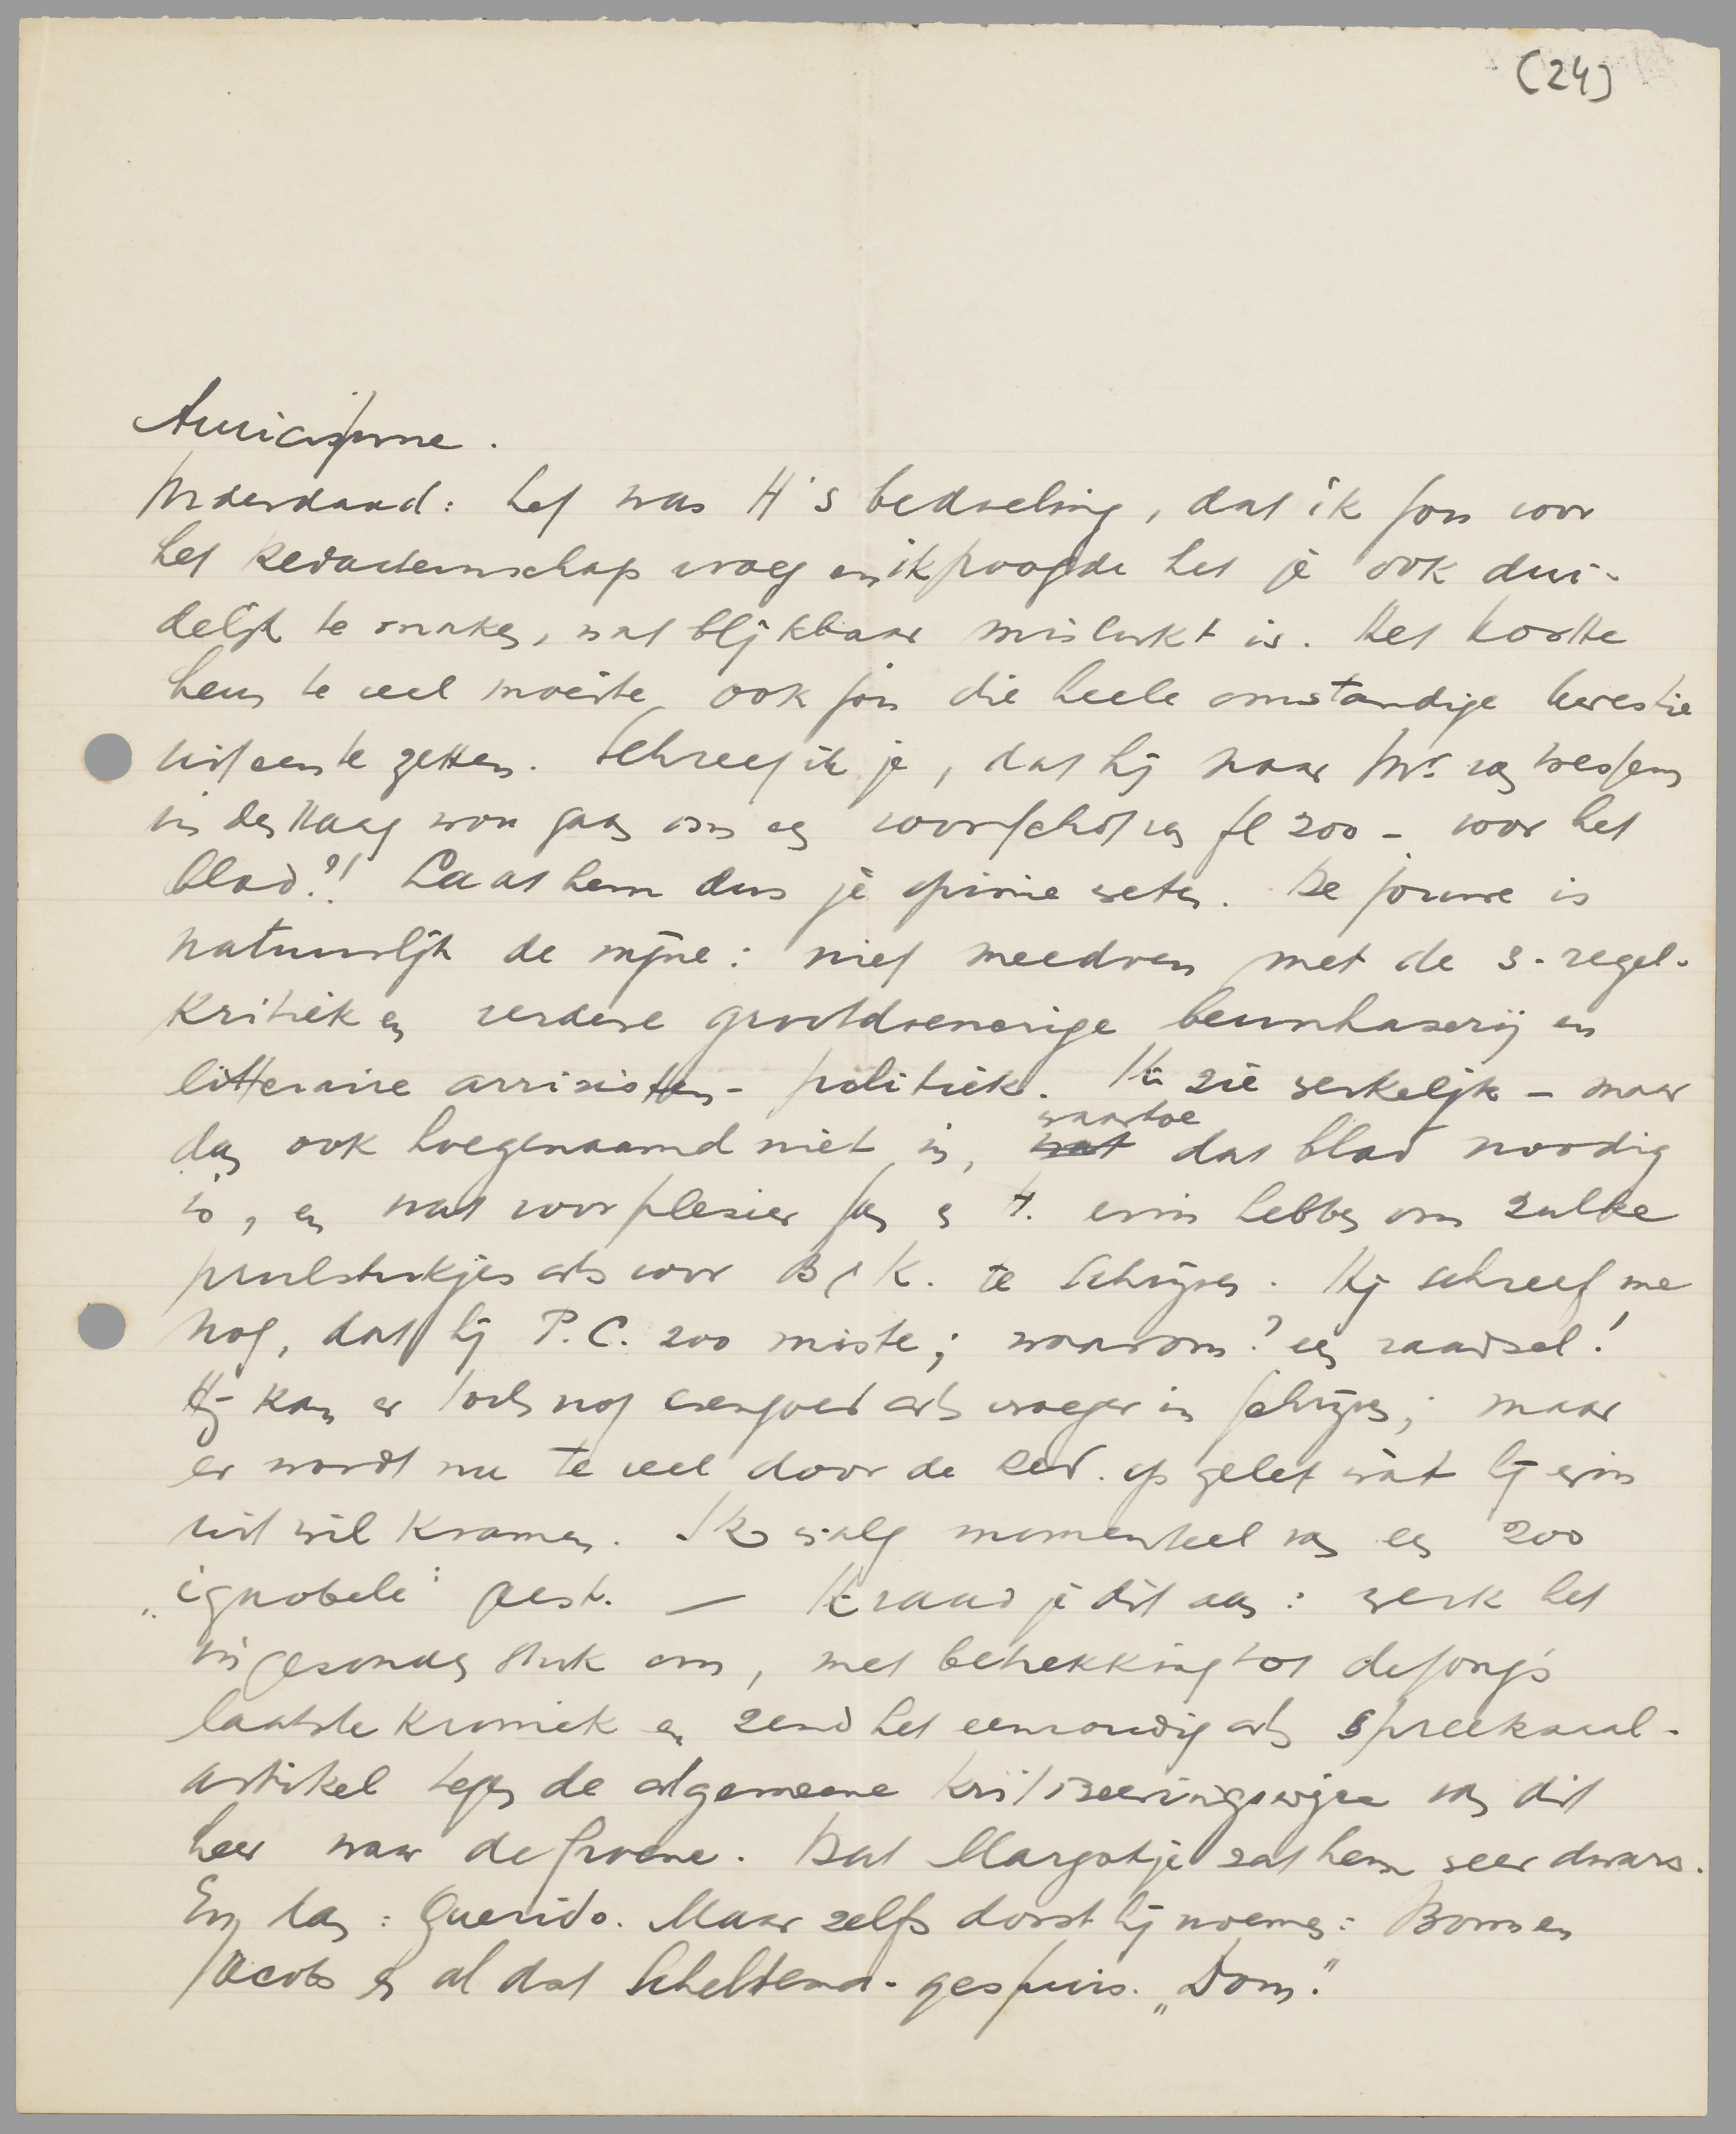 (24)
Amicissime.
Inderdaad: het was H's bedoeling, dat ik jou voor
het Redacteurschap vroeg en ik poogde het je ook dui-
delijk te maken, wat blijkbaar mislukt is. Het kostte
hem te veel moeite ook jou die heele omstandige kwestie
uiteen te zetten. Schreef ik je, dat hij naar Mr. van Wessem
in den Haag wou gaan om een voorschot van fl 200 – voor het
blad?! Laat hem dus je opinie weten. De jouwe is
natuurlijk de mijne: niet meedoen met de 3-regel-
kritiek en verdere grootdoenerige beunhazerij en
litteraire arrivisten-politiek. Ik zie werkelijk – maar
dan ook hoegenaamd niet in, waartoe dat blad noodig
is, en wat voor plesier erin hebben om zulke
prulstukjes als voor B & K. te schrijven. Hij schreef me
nog, dat hij P.C. zoo miste; waarom? een raadsel!
Hij kan er toch nog evengoed als vroeger in schrijven; maar
er wordt nu te veel door de Red. op gelet wàt hij erin
uit wil kramen. Ik walg momenteel van een zoo
„ignobele" geest. — Ik raad je dit aan: werk het
ingezonden stuk om, met betrekking tot de Jong's
laatste kroniek en zend het eenvoudig als spreekzaal-
artikel tegen de algemeene kritiseeringswijze van dit
heer naar de Groene. Dat Margotje zat hem zeer dwars.
En dan: Querido. Maar zelfs dorst hij noemen: Borus en
Jacobs en al dat Scheltema-gespuis. „Dom."